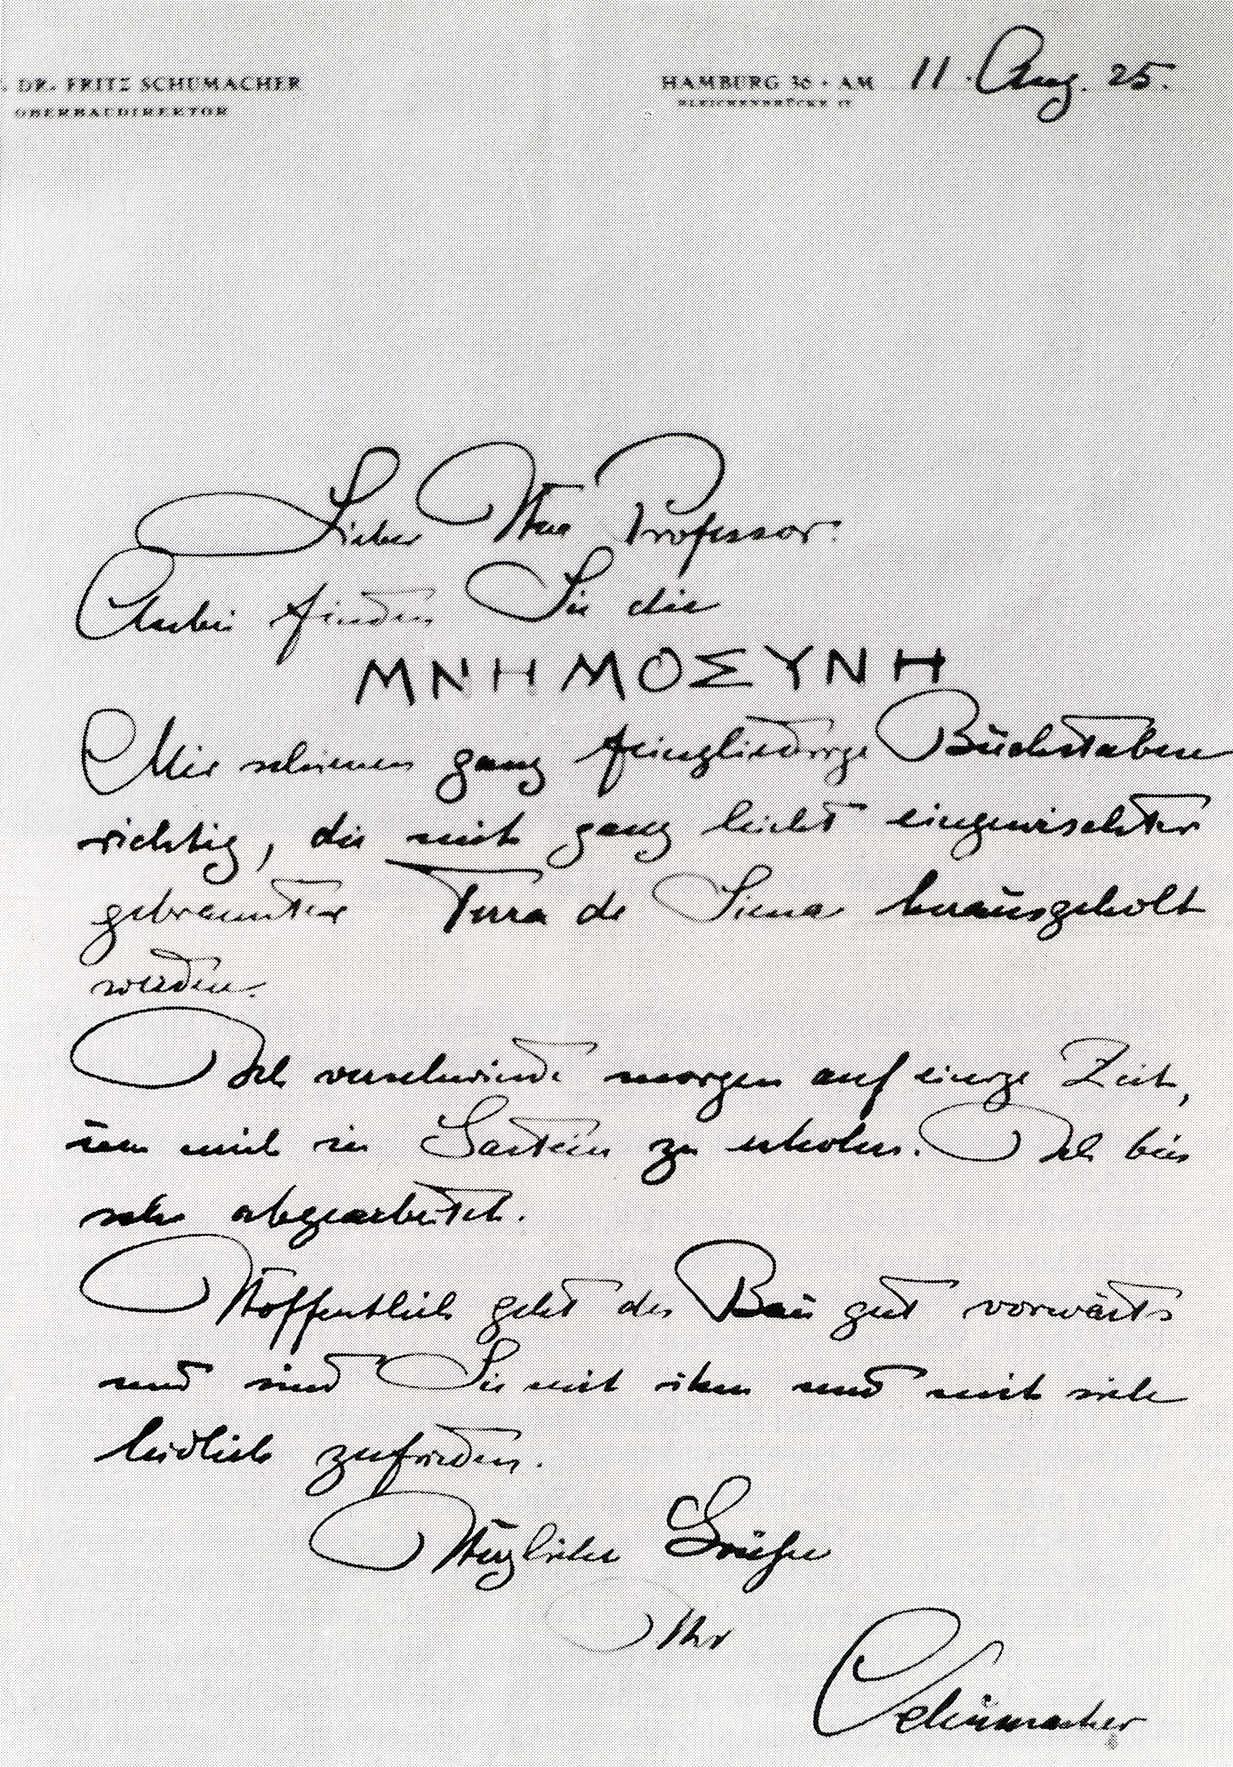 . DR. FRITZ SCHUMACHER
OBERBAUDIREKTOR
HAMBURG 36 · AM 11. Aug. 25.
BLEICHENBRÜCKE 17
Lieber Herr Professor.
Anbei finden Sie die
ΜΝΗΜΟΣΥΝΗ
Mir scheinen ganz feingliedrige Buchstaben
richtig, die mit ganz leicht eingewischter
gebrannter Terra de Siena herausgeholt
werden.
Ich verschwinde morgen auf einige Zeit,
um mich in Gastein zu erholen. Ich bin
sehr abgearbeitet.
Hoffentlich geht der Bau gut vorwärts
und sind Sie mit ihm und mit sich
leidlich zufrieden.
Herzliche Grüße
Ihr
Schumacher